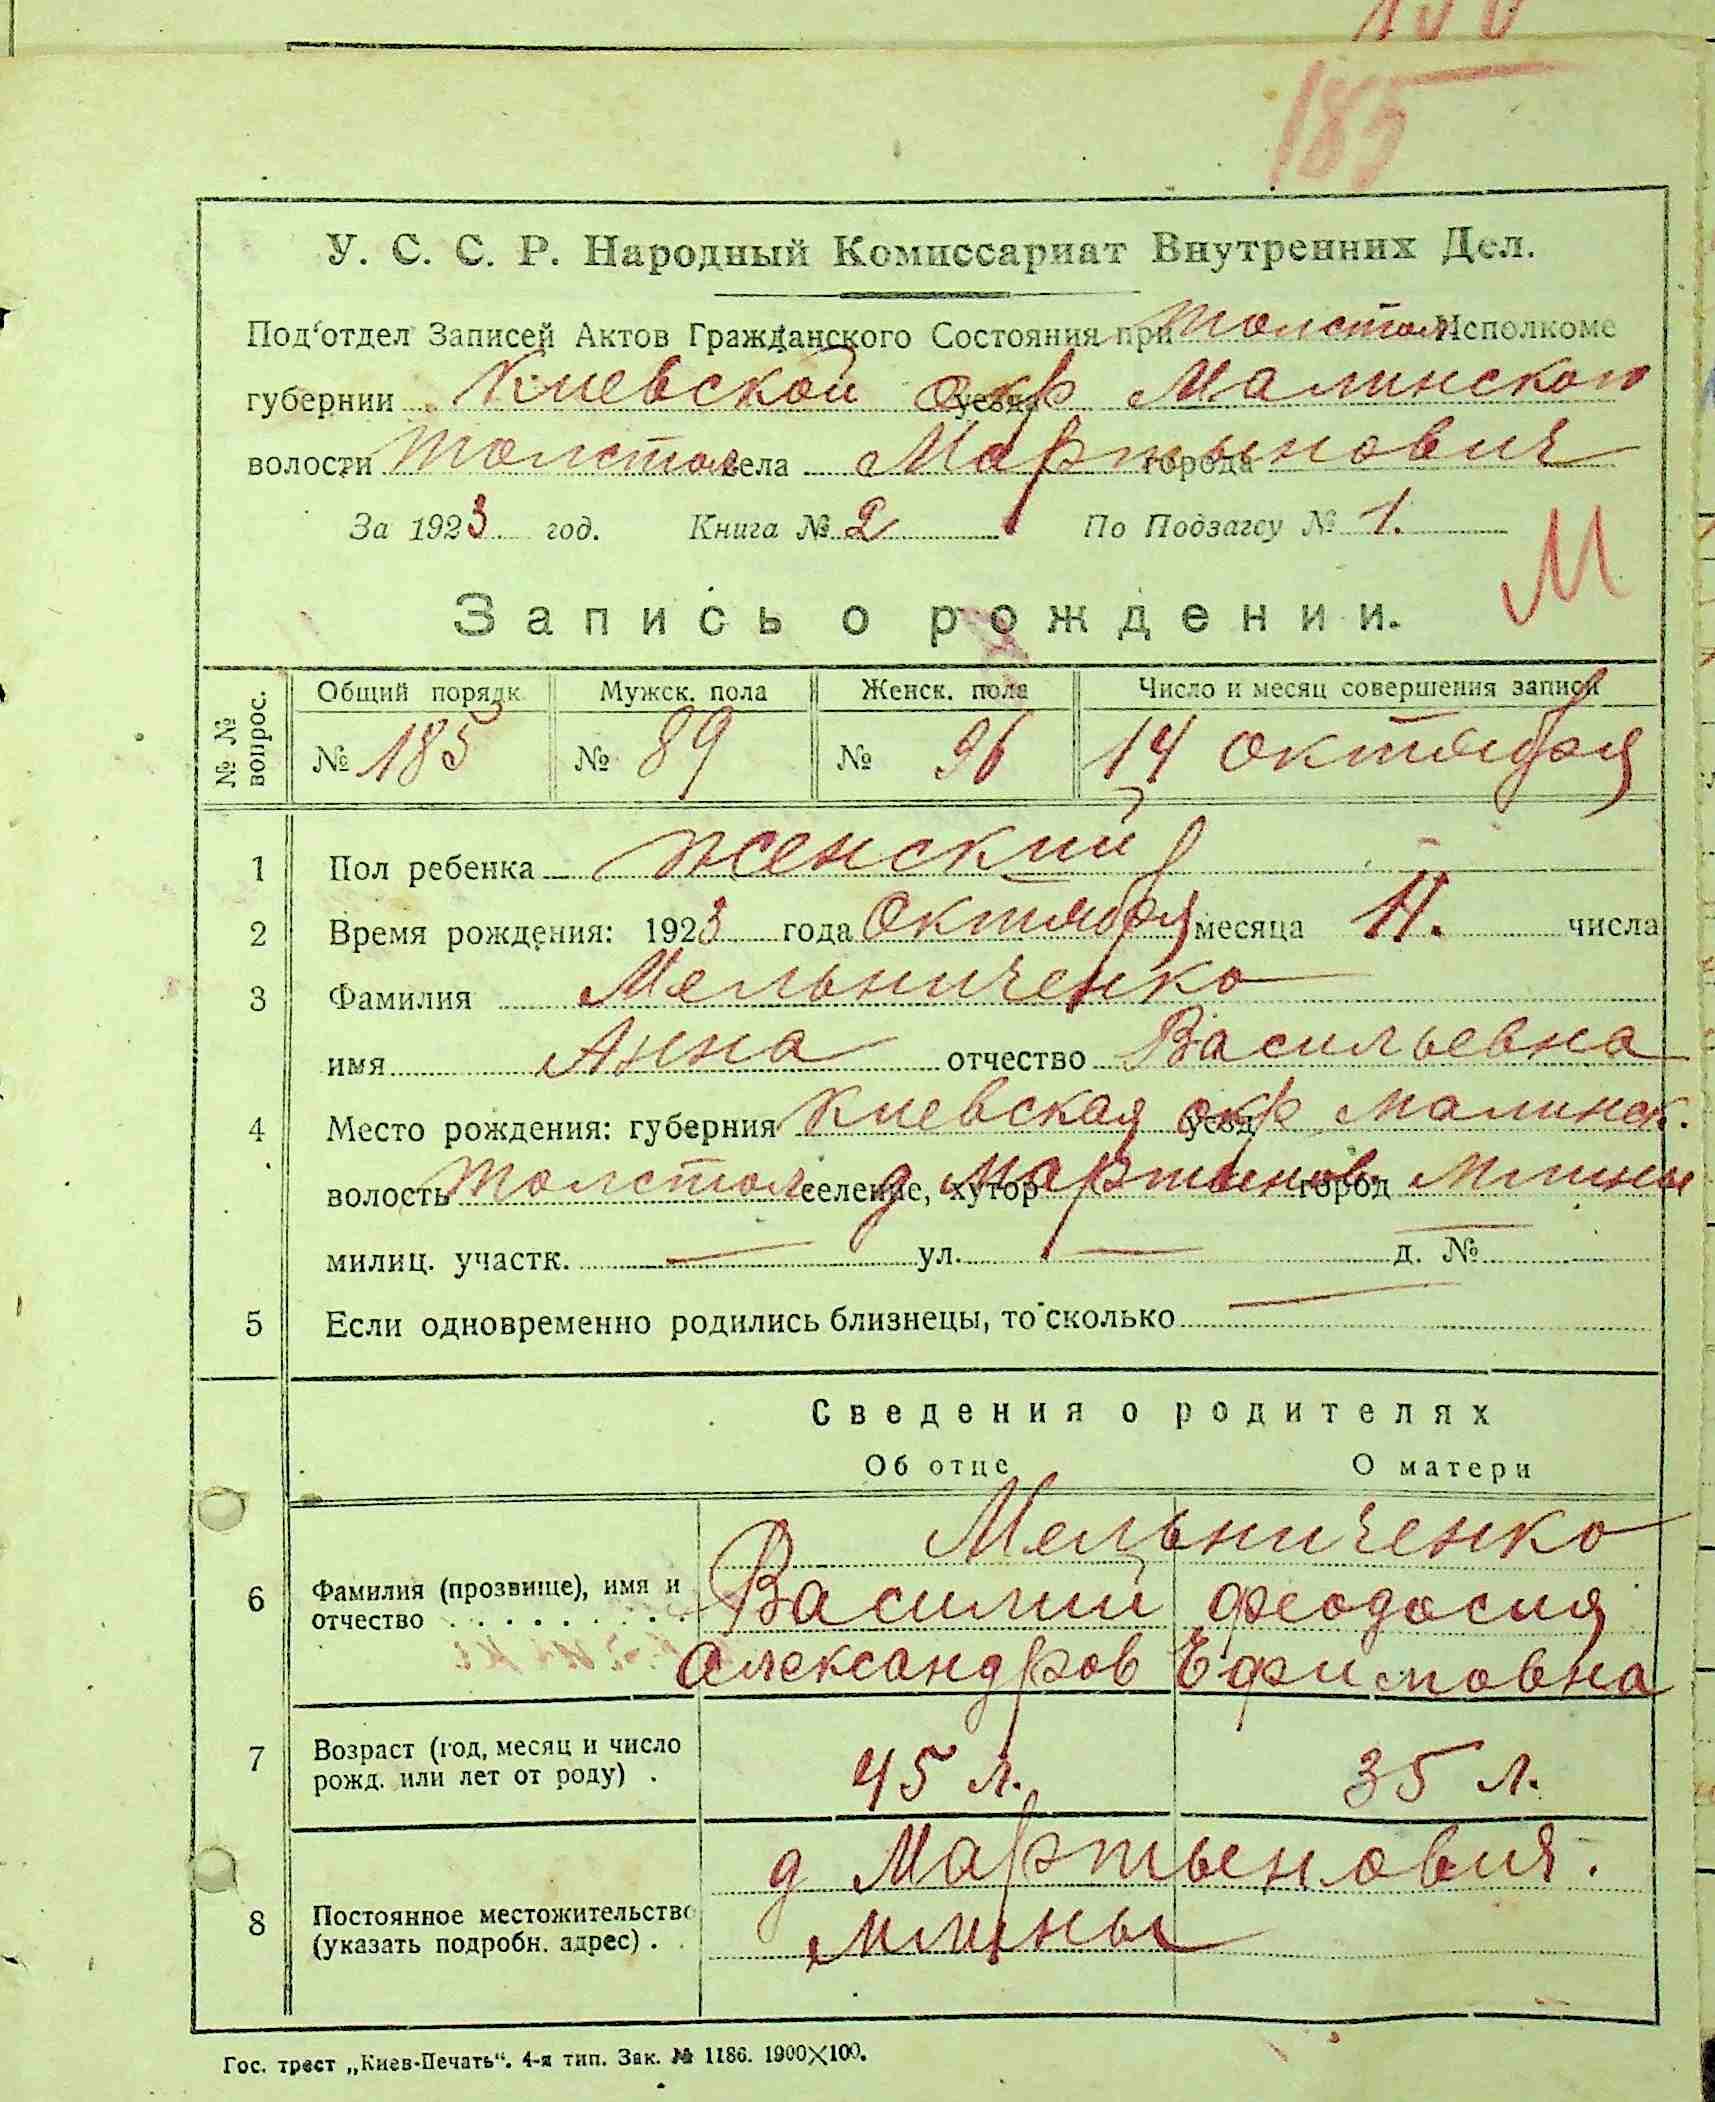 185
У. С. С. Р. Народный Комиссариат Внутренних Дел.
Под'отдел Записей Актов Гражданского Состояния при Толстол Исполкоме
губернии Киевской уезда окр Малинского
волости Толстол села Мартынович города
За 1923 год. Книга № 2 По Подзагсу № 1.
М
Запись о рождении.
№ № вопрос.
Общий порядк. Мужск. пола Женск. пола Число и месяц совершения записи
№ 185 № 89 № 96 14 октября
1 Пол ребенка женский
2 Время рождения: 1923 года Октября месяца 11. числа
3 Фамилия Мельниченко
имя Анна отчество Васильевна
4 Место рождения: губерния Киевская уезд окр Малинск.
волость Толстол селение, хутор д Мартынов. город Млины
милиц. участк. — ул. — д. № —
5 Если одновременно родились близнецы, то сколько —
Сведения о родителях
Об отце О матери
Мельниченко
6 Фамилия (прозвище), имя и Василий Феодосия
отчество Александров Ефимовна
7 Возраст (год, месяц и число
рожд. или лет от роду) . 45 л. 35 л.
д Мартынович.
8 Постоянное местожительство Млины
(указать подробн. адрес) .
Гос. трест „Киев-Печать“. 4-я тип. Зак. № 1186. 1900×100.